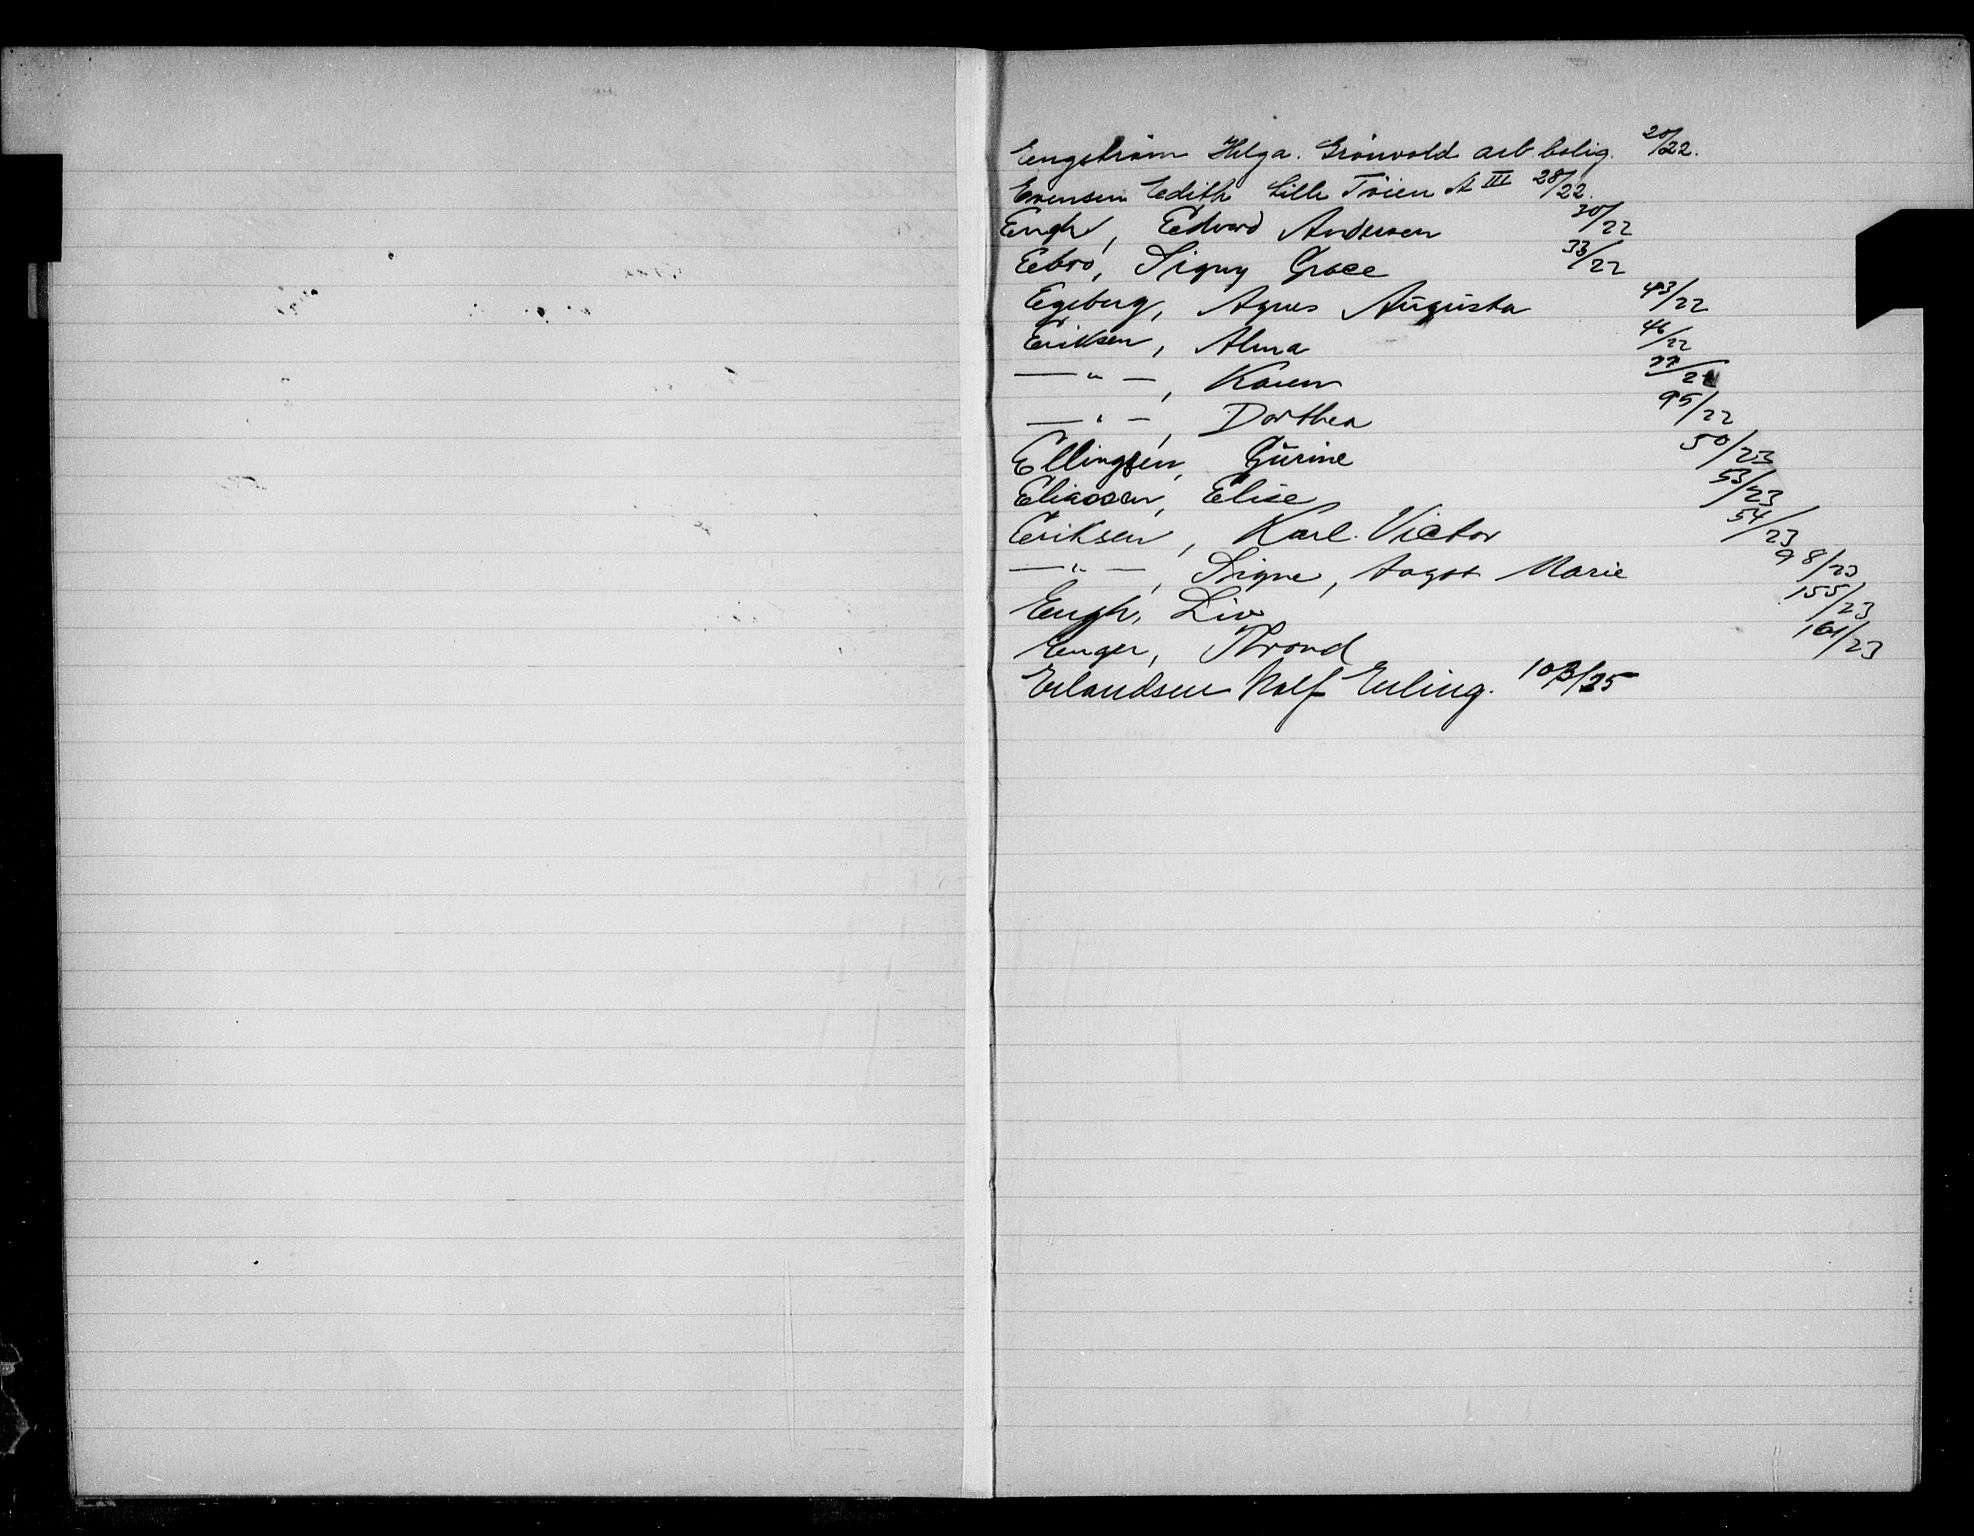 Engstrøm Helga. Grönvold arb. bolig. 20/22.
Evensen Edith Lille Tøien A III 28/22.
Engh, Edvard Andersen 30/22
Eebro, Signy Grace 33/22
Egeberg, Agnes Augusta 43/22
Eriksen, Alma 46/22
—"—, Karen 77/22
—"—, Dorthea 95/22
Ellingsen, Gurine 50/23
Eliassen, Elise 53/23
Eriksen, Karl. Victor 54/23
—"—, Signe, Marie 98/23
Engh, Liv 155/23
Enger, Thrond 161/23
Erlandsen Ralf Erling. 103/25